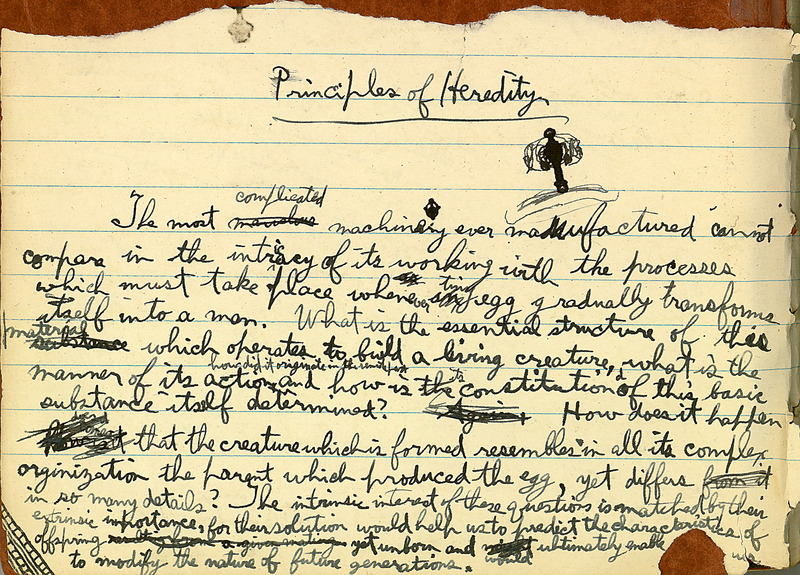 Principles of Heredity
complicated
The most marvelous machinery ever manufactured cannot
compare in the intricacy of its working with the processes
which must take place whenever tiny egg gradually transforms
itself into a man. What is the essential structure of this
material
substance which operates to build a living creature, what is the
how did it originate in the
manner of its action, and how is the its constitution of this basic
substance itself determined? Again, How does it happen
that the creature which is formed resembles in all its complex
orginization the parent which produced the egg, yet differs from it
in so many details? The intrinsic interest of these questions is matched by their
extrinsic importance, for their solution would help us to predict the characteristics of
offspring resulting from a given mating yet unborn and might would ultimately enable us
to modify the nature of future generations.